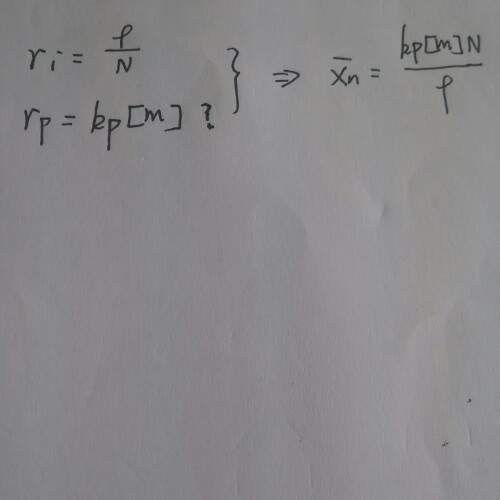 ri = ρ/N
rp = kp[m] ?
} ⇒ x̄n = kp[m]N/ρ